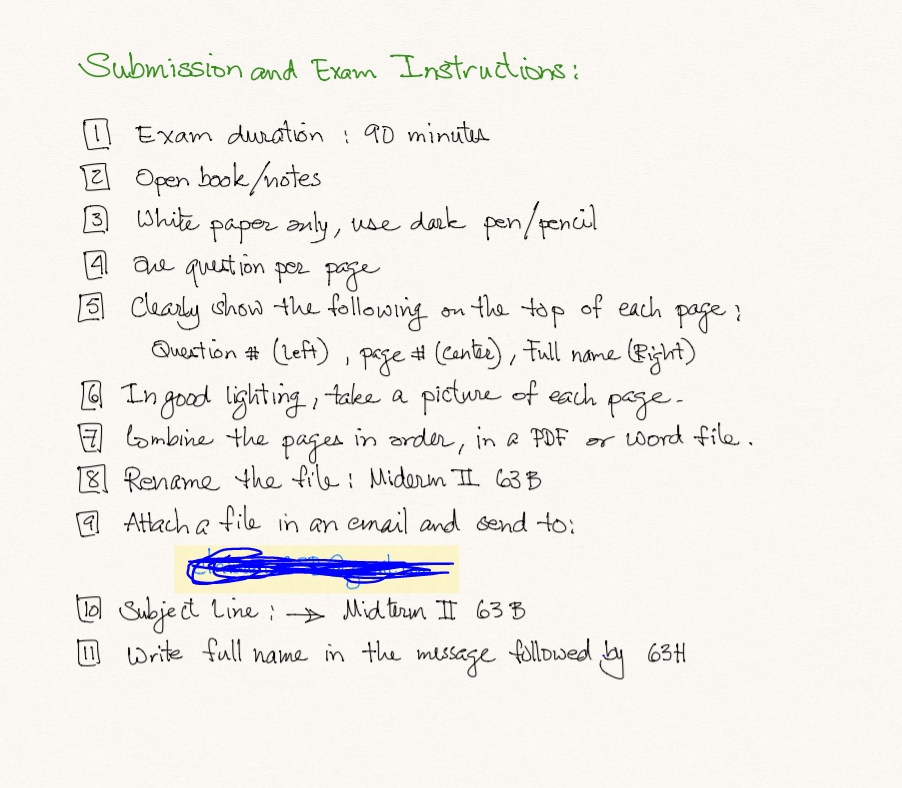 Submission and Exam Instructions:
1 Exam duration : 90 minutes
2 Open book/notes
3 White paper only, use dark pen/pencil
4 One question per page
5 Clearly show the following on the top of each page:
Question # (Left) , page # (Center), Full name (Right)
6 In good lighting, take a picture of each page.
7 Combine the pages in order, in a PDF or Word file.
8 Rename the file: Miderm II 63B
9 Attach a file in an email and send to:
10 Subject Line: → Midterm II 63B
11 Write full name in the message followed by 63H